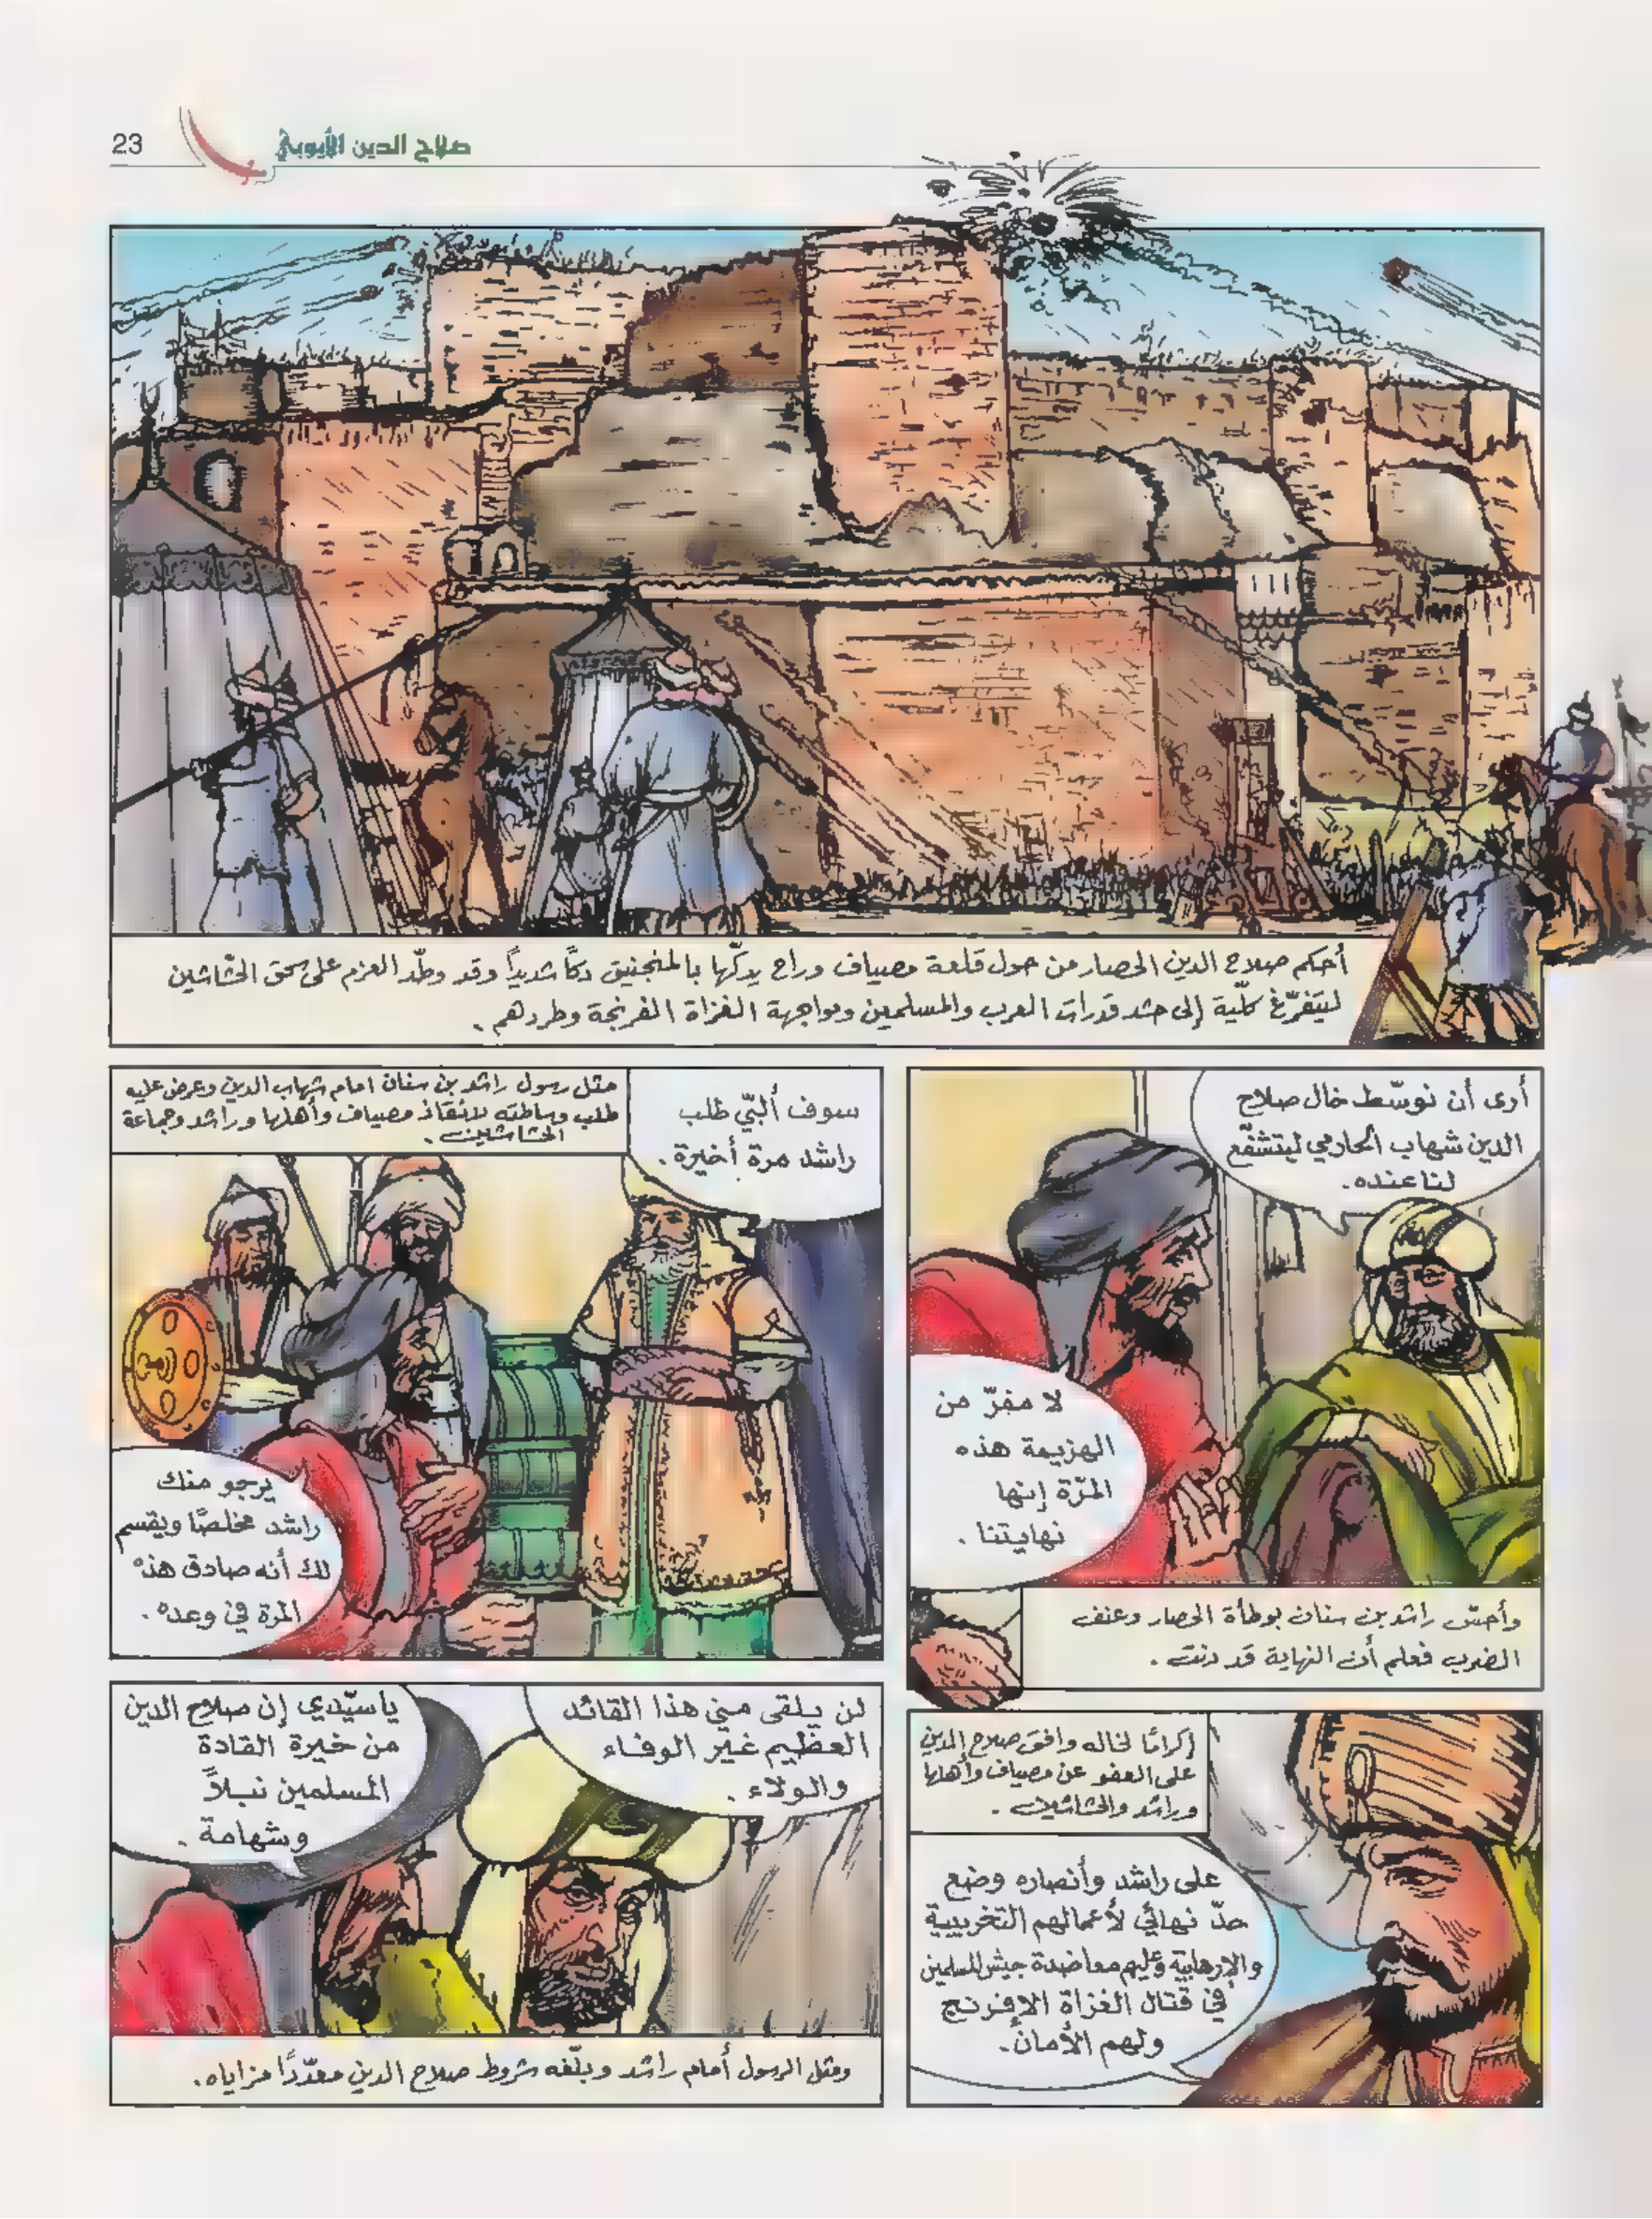 23
صلاح الدين الأيوبي
أحكم صلاح الدين الحصار من حول قلعة مصياف وراح يدكّها بالمنجنيق دكاً شديداً وقد وطّد العزم على سحق الحشّاشين
ليتفرّغ كلّية إلى حشد قدرات العرب والمسلمين ومواجهة الغزاة الفرنجة وطردهم.
أرى أن نوسّط خال صلاح
الدين شهاب الحارمي ليتشفّع
لنا عنده.
لا مفرّ من
الهزيمة هذه
المرّة إنها
نهايتنا.
وأحسّ راشد بن سنان بوطأة الحصار وعنف
الضرب فعلم أن النهاية قد دنت.
مثل رسول راشد بن سنان امام شهاب الدين وعرض عليه
طلب وساطته لانقاذ مصياف وأهلها وراشد وجماعة
الحشاشين.
سوف ألبّي طلب
راشد مرة أخيرة.
يرجو منك
راشد مخلصًا ويقسم
لك أنه صادق هذه
المرة في وعده.
إكرامًا لخاله وافق صلاح الدين
على العفو عن مصياف وأهلها
وراشد والحشاشين.
على راشد وأنصاره وضع
حدّ نهائي لأعمالهم التخريبية
والإرهابية وعليهم معاضدة جيش المسلمين
في قتال الغزاة الإفرنج
ولهم الأمان.
لن يلقى مني هذا القائد
العظيم غير الوفاء
والولاء.
يا سيّدي إن صلاح الدين
من خيرة القادة
المسلمين نبلاً
وشهامة.
ومثل الرسول أمام راشد وبلّغه شروط صلاح الدين معدّدًا مزاياه.